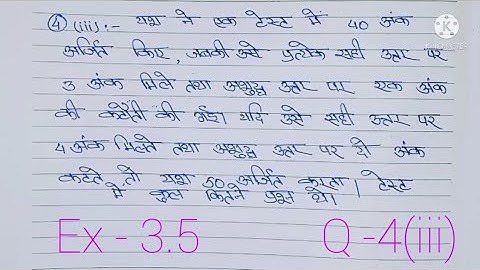 ④ (iii):- यश ने एक टेस्ट में 40 अंक
अर्जित किए, जबकी उसे प्रत्येक सही उत्तर पर
3 अंक मिले तथा अशुद्ध उत्तर पर एक अंक
की कटौती की गई। यदि उसे सही उत्तर पर
4 अंक मिलते तथा अशुद्ध उत्तर पर दो अंक
कटते तो यश 50 अर्जित करता। टेस्ट
में कुल कितने प्रश्न थे।
Ex - 3.5 Q -4(iii)